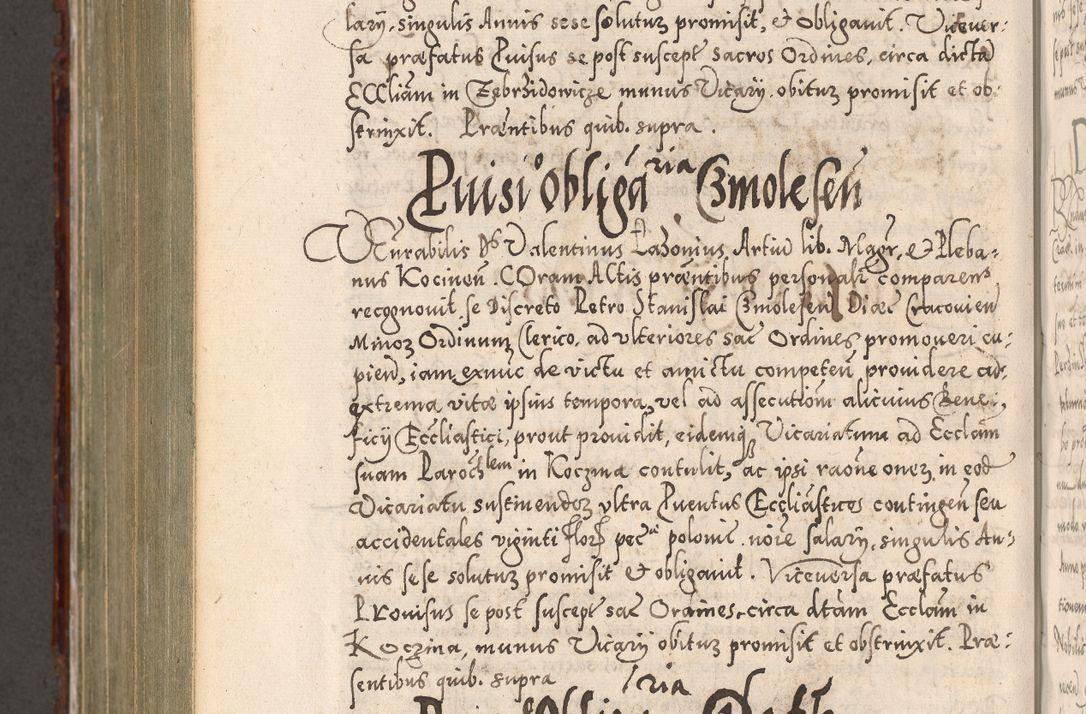 lary, singulis Annis sese solutuꝫ promisit, et obligavit. Vicever-
sa præfatus Puisus se post suscept sacros Ordines, circa dicta
Ecclīam in Zebrzidowicze munus Vicarÿ. obituꝫ promisit et ob-
strinxit. Præntibus quib. supra.
Puisio obligaria Czmolesen
Venrabilis Ds Valentinus Lazonius, Artiu lib. Magr, et Pleba-
nus Kocinen. COram ACtis præntibus personalr comparens
recognovit, se Discreto Petro Stanislai Czmolesen Diœc Cracovien
Minoꝫ Ordinum Clerico, ad vlteriores sac Ordines promoveri cu-
pien, iam exnuc de victu et amictu competen providere ad
extrema vitæ ipsius tempora, vel ad assecutiom alicuius Bene-
ficÿ Ecclīastici, prout providit, eidemqꝫ Vicariatum ad Ecclam
suam Parochlem in Koczina contulit, ac ipsi raone oneꝫ in eod
Vicariatu sustinendoꝫ vltra Puentus Ecclīasticos contingen seu
accidentales viginti flor pecae polonic. noie salarÿ, singulis An-
nis sese solutuꝫ promisit et obligavit. Viceversa præfatus
Provisus se post suscept sac Ordines, circa dtam Ecclam in
Koczina, munus Vicarÿ obituꝫ promisit et obstrinxit. Præ-
sentibus quib. supra